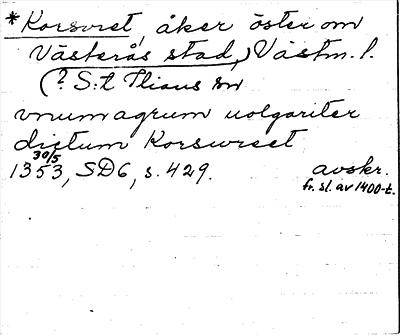 *Korsvret, åker öster om
Västerås stad, Västm. l.
(? S:t Ilians sn
vnum agrum uolgariter
dictum Korswreet
1353 30/5, SD6, s. 429. avskr.
fr. sl. av 1400-t.